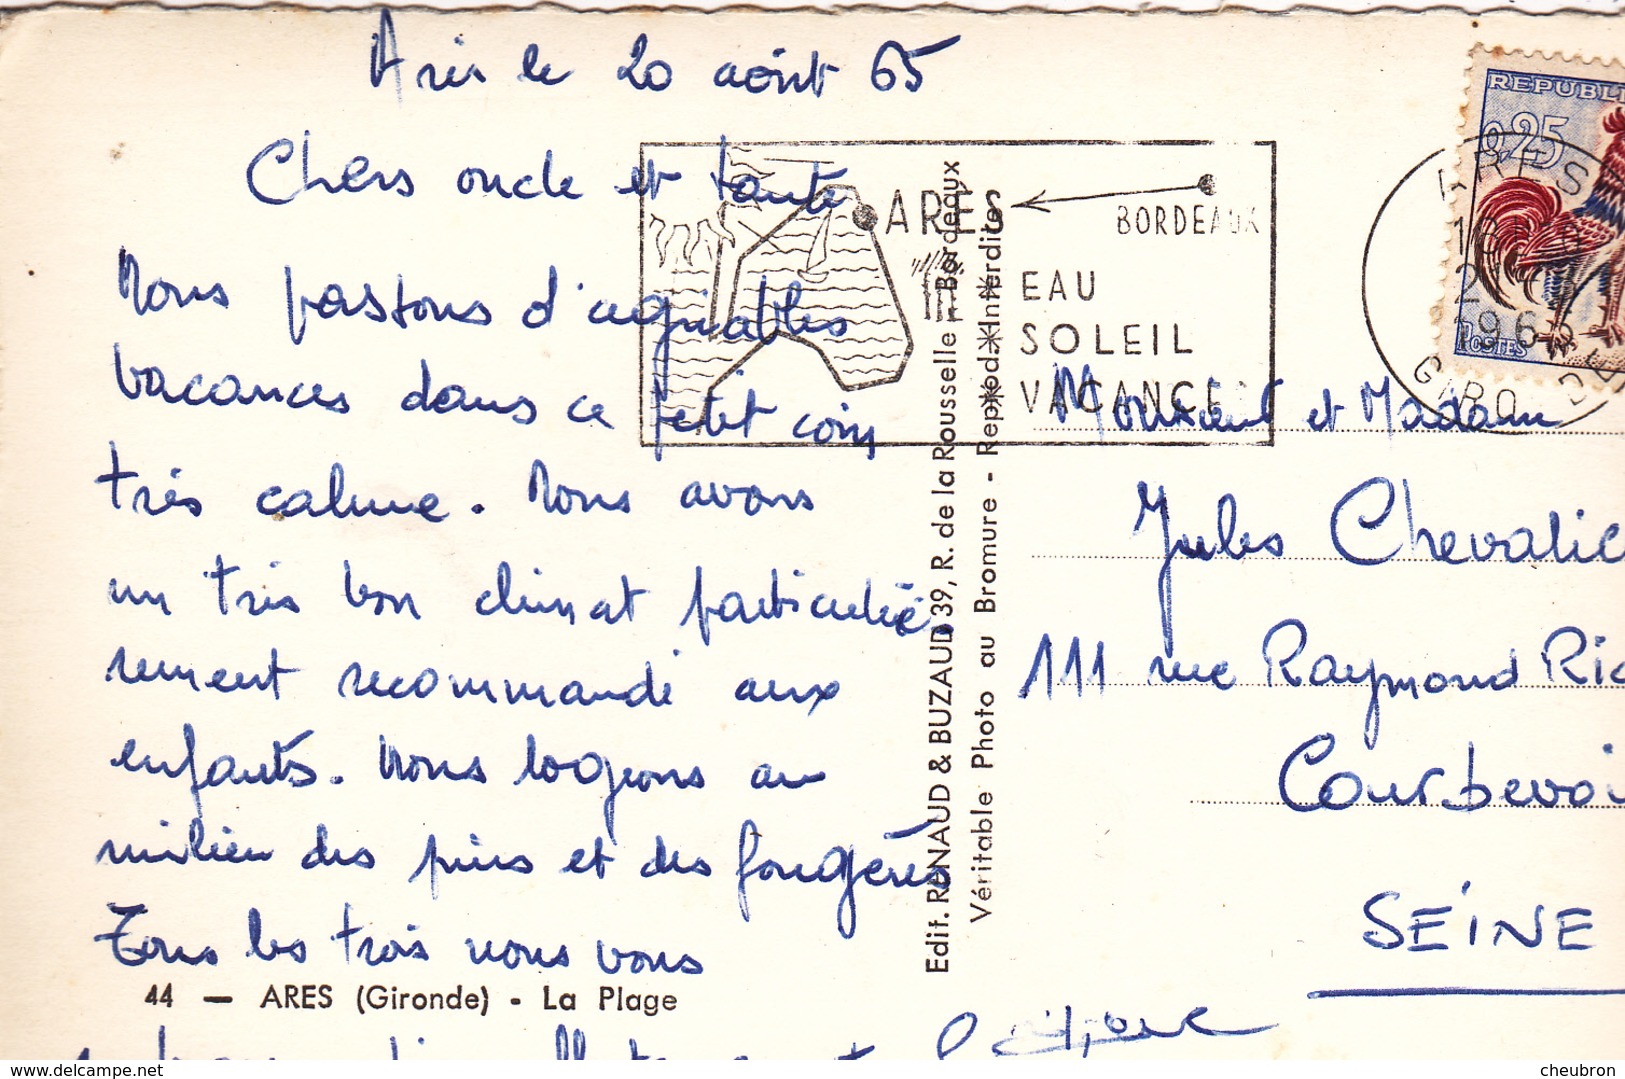 Arès le 20 août 65
Chers oncle et tante
Nous passons d'agréables
vacances dans ce petit coin
très calme. Nous avons
un très bon climat particuliè
rement recommandé aux
enfants. Nous logeons au
milieu des pins et des fougères
Tous les trois nous vous
44 — ARES (Gironde) - La Plage
Edit. RENAUD & BUZAUD, 39, R. de la Rousselle - Bordeaux
Véritable Photo au Bromure - Reprod. Interdite
ARÈS
BORDEAUX
EAU
SOLEIL
VACANCE
REPUBLI
0,25
POSTES
ARES
1965
GIRONDE
Monsieur et Madame
Jules Chevalie
111 rue Raymond Ri
Courbevoi
SEINE
cheubron
delcampe.net